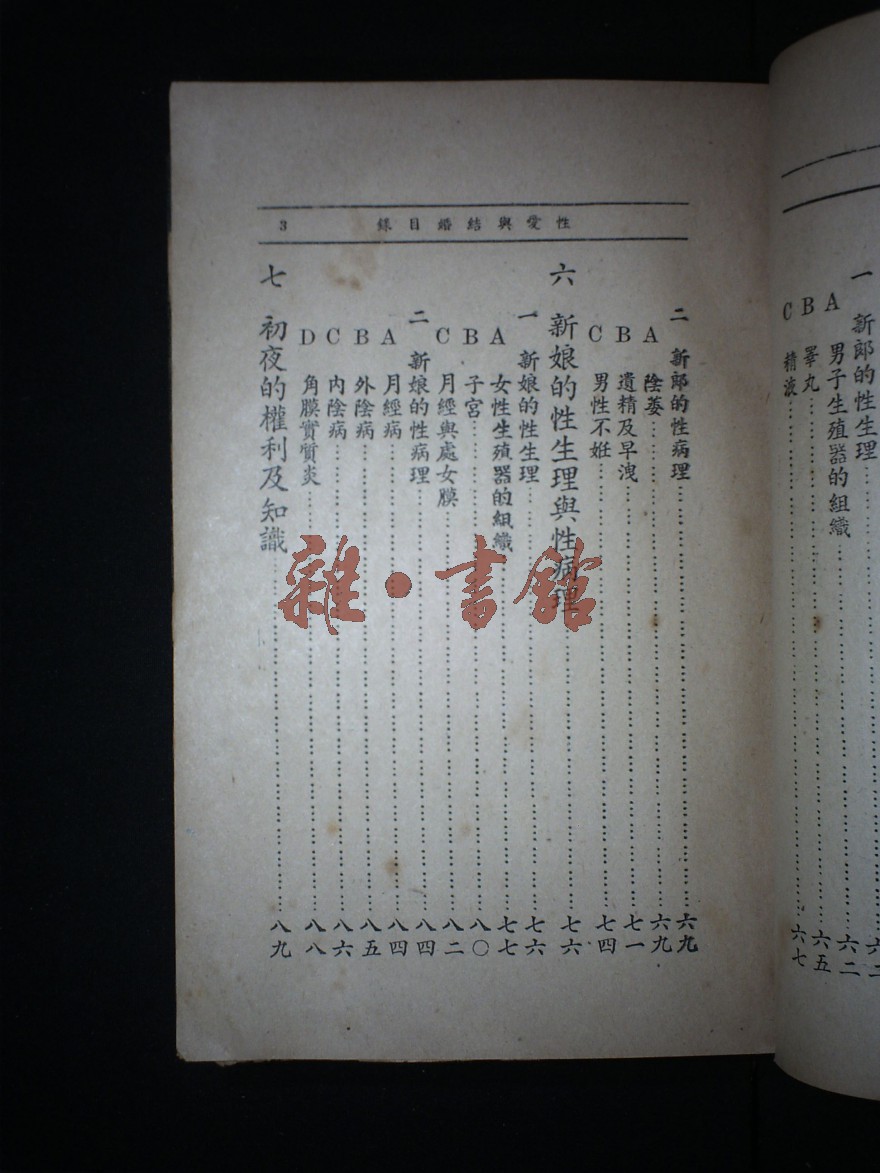 性愛與結婚目錄 3
一 新郎的性生理……六二
A 男子生殖器的組織……六二
B 睪丸……六五
C 精液……六七
二 新郎的性病理……六九
A 陰萎……六九
B 遺精及早洩……七一
C 男性不姙……七四
六 新娘的性生理與性病理……七六
一 新娘的性生理……七六
A 女性生殖器的組織……七七
B 子宮……八〇
C 月經與處女膜……八二
二 新娘的性病理……八四
A 月經病……八四
B 外陰病……八五
C 內陰病……八六
D 角膜實質炎……八八
七 初夜的權利及知識……八九
雜·書館